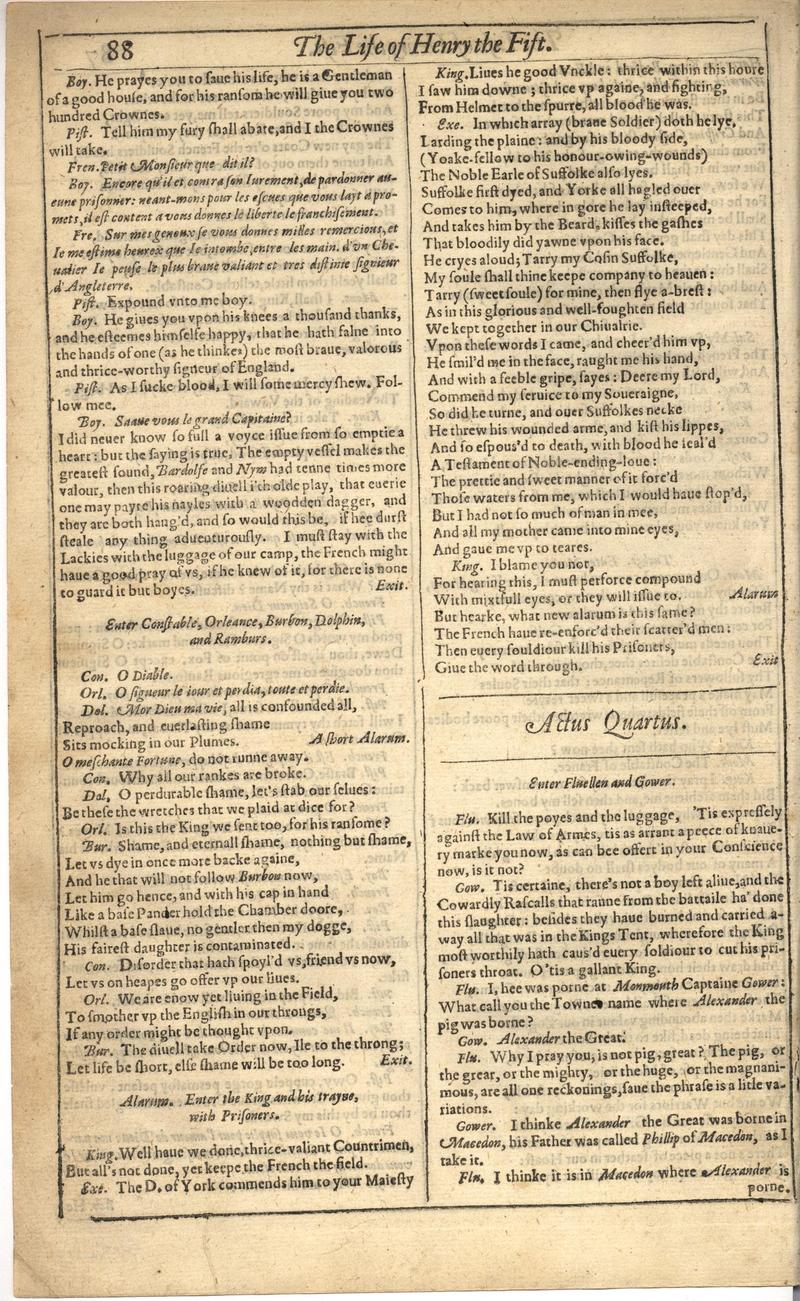 88
The Life of Henry the Fift.
Boy. He prayes you to ſaue his life, he is a Gentleman
of a good houſe, and for his ranſom he will giue you two
hundred Crownes.
Piſt. Tell him my fury ſhall abate, and I the Crownes
will take.
Fren. Petit Monſieur que dit il?
Boy. Encore qu'il et contra ſon Iurement, de pardonner au-
cune priſonner: neant-mons pour les eſcues que vous layt a pro-
mets, il eſt content a vous donnes le liberte le franchiſement.
Fre. Sur mes genoux ſe vous donnes milles remercious, et
Ie me eſtime heurex que Ie intombe, entre les main. d'vn Che-
ualier Ie peuſe le plus braue valiant et tres diſtinie ſigneur
d'Angleterre.
Piſt. Expound vnto me boy.
Boy. He giues you vpon his knees a thouſand thanks,
and he eſteemes himſelfe happy, that he hath falne into
the hands of one (as he thinkes) the moſt braue, valorous
and thrice-worthy ſigneur of England.
Piſt. As I ſucke blood, I will ſome mercy ſhew. Fol-
low mee.
Boy. Saaue vous le grand Capitaine?
I did neuer know ſo full a voyce iſſue from ſo emptie a
heart: but the ſaying is true, The empty veſſel makes the
greateſt ſound, Bardolfe and Nym had tenne times more
valour, then this roaring diuell i'th olde play, that euerie
one may payre his nayles with a woodden dagger, and
they are both hang'd, and ſo would this be, if hee durſt
ſteale any thing aduenturouſly. I muſt ſtay with the
Lackies with the luggage of our camp, the French might
haue a good pray of vs, if he knew of it, for there is none
to guard it but boyes. Exit.
Enter Conſtable, Orleance, Burbon, Dolphin,
and Ramburs.
Con. O Diable.
Orl. O ſigueur le iour et perdia, toute et perdie.
Dol. Mor Dieu ma vie, all is confounded all,
Reproach, and euerlaſting ſhame
Sits mocking in our Plumes. A ſhort Alarum.
O meſchante Fortune, do not runne away.
Con. Why all our rankes are broke.
Dol. O perdurable ſhame, let's ſtab our ſelues:
Be theſe the wretches that we plaid at dice for?
Orl. Is this the King we ſent too, for his ranſome?
Bur. Shame, and eternall ſhame, nothing but ſhame,
Let vs dye in once more backe againe,
And he that will not follow Burbon now,
Let him go hence, and with his cap in hand
Like a baſe Pander hold the Chamber doore,
Whilſt a baſe ſlaue, no gentler then my dogge,
His faireſt daughter is contaminated.
Con. Diſorder that hath ſpoyl'd vs, friend vs now,
Let vs on heapes go offer vp our liues.
Orl. We are enow yet liuing in the Field,
To ſmother vp the Engliſh in our throngs,
If any order might be thought vpon.
Bur. The diuell take Order now, Ile to the throng;
Let life be ſhort, elſe ſhame will be too long. Exit.
Alarum. Enter the King and his trayne,
with Priſoners.
King. Well haue we done, thrice-valiant Countrimen,
But all's not done, yet keepe the French the field.
Exe. The D. of York commends him to your Maieſty
King. Liues he good Vnckle: thrice within this houre
I ſaw him downe; thrice vp againe, and fighting,
From Helmet to the ſpurre, all blood he was.
Exe. In which array (braue Soldier) doth he lye,
Larding the plaine: and by his bloody ſide,
(Yoake-fellow to his honour-owing-wounds)
The Noble Earle of Suffolke alſo lyes.
Suffolke firſt dyed, and Yorke all hagled ouer
Comes to him, where in gore he lay inſteeped,
And takes him by the Beard, kiſſes the gaſhes
That bloodily did yawne vpon his face.
He cryes aloud; Tarry my Coſin Suffolke,
My ſoule ſhall thine keepe company to heauen:
Tarry (ſweet ſoule) for mine, then flye a-breſt:
As in this glorious and well-foughten field
We kept together in our Chiualrie.
Vpon theſe words I came, and cheer'd him vp,
He ſmil'd me in the face, raught me his hand,
And with a feeble gripe, ſayes: Deere my Lord,
Commend my ſeruice to my Soueraigne,
So did he turne, and ouer Suffolkes necke
He threw his wounded arme, and kiſt his lippes,
And ſo eſpous'd to death, with blood he ſeal'd
A Teſtament of Noble-ending-loue:
The prettie and ſweet manner of it forc'd
Thoſe waters from me, which I would haue ſtop'd,
But I had not ſo much of man in mee,
And all my mother came into mine eyes,
And gaue me vp to teares.
King. I blame you not,
For hearing this, I muſt perforce compound
With mixtfull eyes, or they will iſſue to. Alarum
But hearke, what new alarum is this ſame?
The French haue re-enforc'd their ſcatter'd men:
Then euery ſouldiour kill his Priſoners,
Giue the word through. Exit
Actus Quartus.
Enter Fluellen and Gower.
Flu. Kill the poyes and the luggage, 'Tis expreſſely
againſt the Law of Armes, tis as arrant a peece of knaue-
ry marke you now, as can bee offert in your Conſcience
now, is it not?
Gow. Tis certaine, there's not a boy left aliue, and the
Cowardly Raſcalls that ranne from the battaile ha' done
this ſlaughter: beſides they haue burned and carried a-
way all that was in the Kings Tent, wherefore the King
moſt worthily hath caus'd euery ſoldiour to cut his pri-
ſoners throat. O 'tis a gallant King.
Flu. I, hee was porne at Monmouth Captaine Gower:
What call you the Townes name where Alexander the
pig was borne?
Gow. Alexander the Great.
Flu. Why I pray you, is not pig, great? The pig, or
the great, or the mighty, or the huge, or the magnani-
mous, are all one reckonings, ſaue the phraſe is a litle va-
riations.
Gower. I thinke Alexander the Great was borne in
Macedon, his Father was called Phillip of Macedon, as I
take it.
Flu. I thinke it is in Macedon where Alexander is
porne.